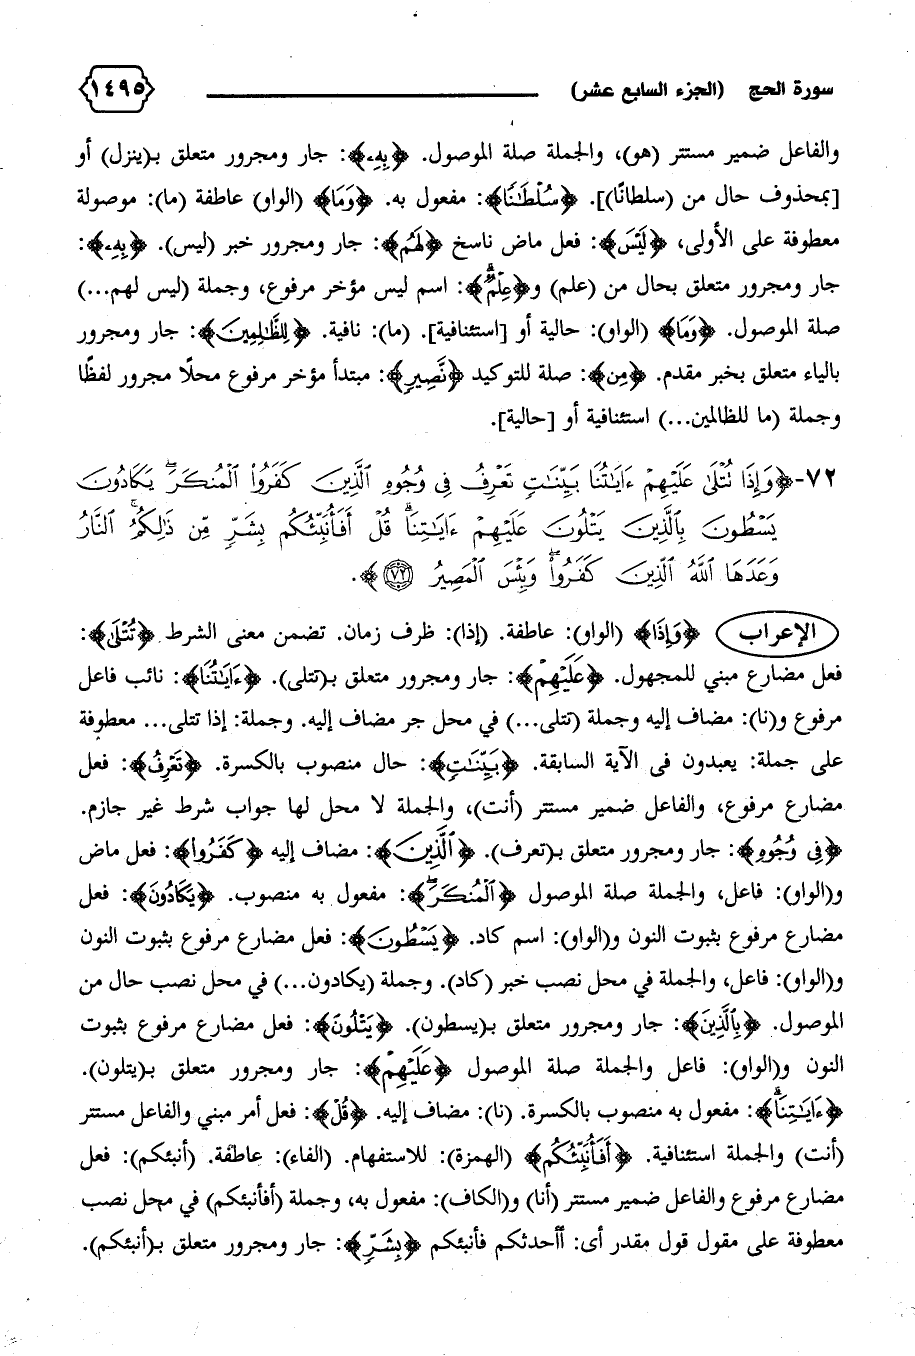 سورة الحج (الجزء السابع عشر) ١٤٩٥
والفاعل ضمير مستتر (هو)، والجملة صلة الموصول. ﴿بِهِۦ﴾: جار ومجرور متعلق بـ(ينزل) أو
[بمحذوف حال من (سلطانًا)]. ﴿سُلْطَٰنًا﴾: مفعول به. ﴿وَمَا﴾ (الواو) عاطفة (ما): موصولة
معطوفة على الأولى، ﴿لَيْسَ﴾: فعل ماض ناسخ ﴿لَهُم﴾: جار ومجرور خبر (ليس). ﴿بِهِۦ﴾:
جار ومجرور متعلق بحال من (علم) و﴿عِلْمٌ﴾: اسم ليس مؤخر مرفوع، وجملة (ليس لهم...)
صلة الموصول. ﴿وَمَا﴾ (الواو): حالية أو [استئنافية]. (ما): نافية. ﴿لِلظَّٰلِمِينَ﴾: جار ومجرور
بالياء متعلق بخبر مقدم. ﴿مِن﴾: صلة للتوكيد ﴿نَّصِيرٍ﴾: مبتدأ مؤخر مرفوع محلًا مجرور لفظًا
وجملة (ما للظالمين...) استئنافية أو [حالية].
٧٢- ﴿وَإِذَا تُتْلَىٰ عَلَيْهِمْ ءَايَٰتُنَا بَيِّنَٰتٍ تَعْرِفُ فِى وُجُوهِ الَّذِينَ كَفَرُوا۟ الْمُنكَرَ ۖ يَكَادُونَ
يَسْطُونَ بِالَّذِينَ يَتْلُونَ عَلَيْهِمْ ءَايَٰتِنَا ۗ قُلْ أَفَأُنَبِّئُكُم بِشَرٍّ مِّن ذَٰلِكُمُ ۗ النَّارُ
وَعَدَهَا اللَّهُ الَّذِينَ كَفَرُوا۟ ۖ وَبِئْسَ الْمَصِيرُ ٧٢﴾.
الإعراب ﴿وَإِذَا﴾ (الواو): عاطفة. (إذا): ظرف زمان. تضمن معنى الشرط ﴿تُتْلَىٰ﴾:
فعل مضارع مبني للمجهول. ﴿عَلَيْهِمْ﴾: جار ومجرور متعلق بـ(تتلى). ﴿ءَايَٰتُنَا﴾: نائب فاعل
مرفوع و(نا): مضاف إليه وجملة (تتلى...) في محل جر مضاف إليه. وجملة: إذا تتلى... معطوفة
على جملة: يعبدون فى الآية السابقة. ﴿بَيِّنَٰتٍ﴾: حال منصوب بالكسرة. ﴿تَعْرِفُ﴾: فعل
مضارع مرفوع، والفاعل ضمير مستتر (أنت)، والجملة لا محل لها جواب شرط غير جازم.
﴿فِى وُجُوهِ﴾: جار ومجرور متعلق بـ(تعرف). ﴿الَّذِينَ﴾: مضاف إليه ﴿كَفَرُوا۟﴾: فعل ماض
و(الواو): فاعل، والجملة صلة الموصول ﴿الْمُنكَرَ ۖ﴾: مفعول به منصوب. ﴿يَكَادُونَ﴾: فعل
مضارع مرفوع بثبوت النون و(الواو): اسم كاد. ﴿يَسْطُونَ﴾: فعل مضارع مرفوع بثبوت النون
و(الواو): فاعل، والجملة في محل نصب خبر (كاد). وجملة (يكادون...) في محل نصب حال من
الموصول. ﴿بِالَّذِينَ﴾: جار ومجرور متعلق بـ(يسطون). ﴿يَتْلُونَ﴾: فعل مضارع مرفوع بثبوت
النون و(الواو): فاعل والجملة صلة الموصول ﴿عَلَيْهِمْ﴾: جار ومجرور متعلق بـ(يتلون).
﴿ءَايَٰتِنَا ۗ﴾: مفعول به منصوب بالكسرة. (نا): مضاف إليه. ﴿قُلْ﴾: فعل أمر مبني والفاعل مستتر
(أنت) والجملة استئنافية. ﴿أَفَأُنَبِّئُكُم﴾ (الهمزة): للاستفهام. (الفاء): عاطفة. (أنبئكم): فعل
مضارع مرفوع والفاعل ضمير مستتر (أنا) و(الكاف): مفعول به، وجملة (أفأنبئكم) في محل نصب
معطوفة على مقول قول مقدر أى: أأحدثكم فأنبئكم ﴿بِشَرٍّ﴾: جار ومجرور متعلق بـ(أنبئكم).